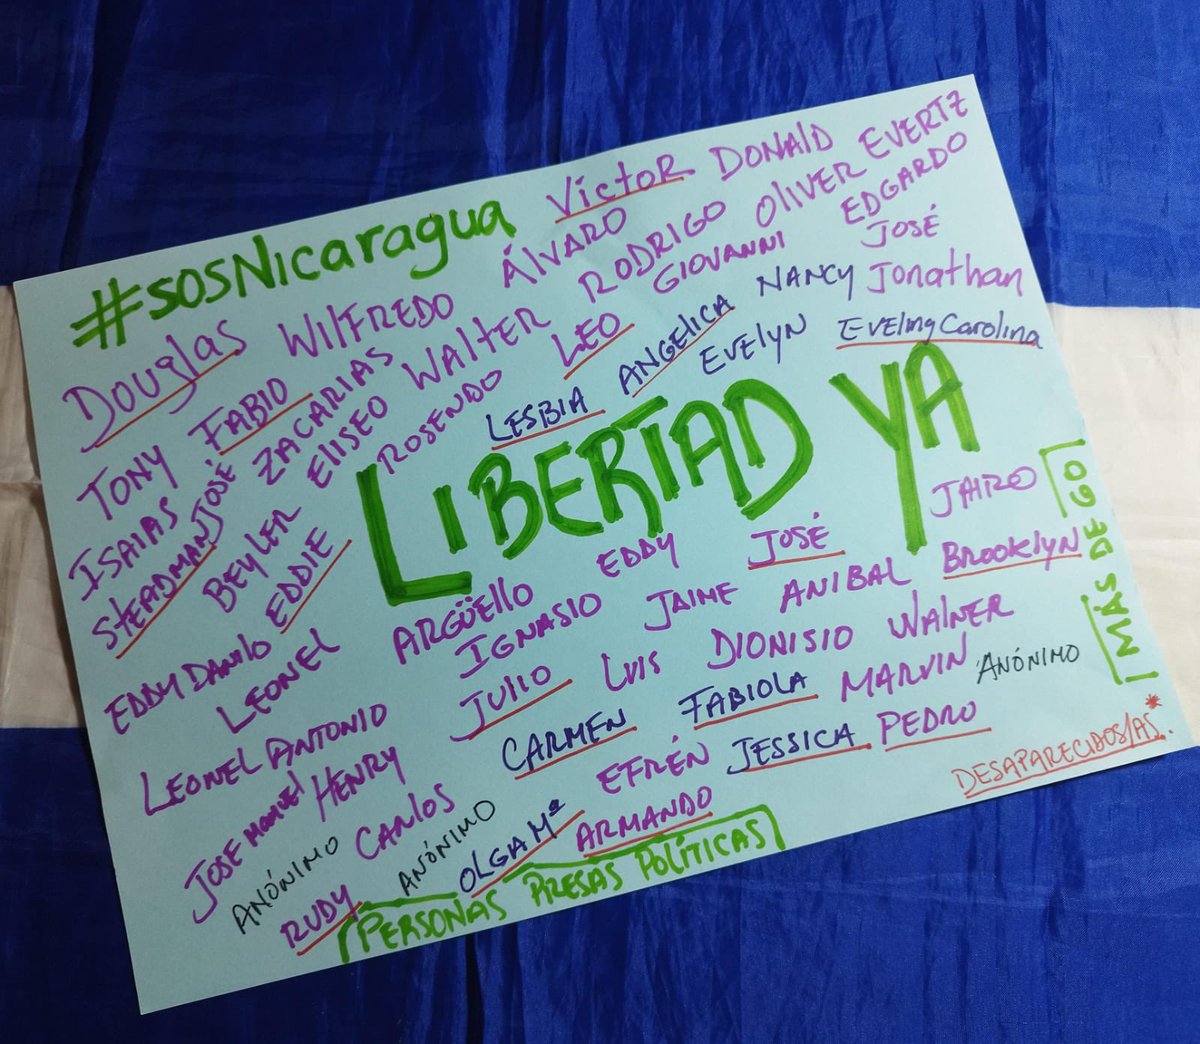 #SOSNicaragua
Víctor DONALD EVERTZ
Douglas WILFREDO ÁLVARO RODRIGO OLIVER EDGARDO
TONY FABIO ZACARIAS WALTER LEO GIOVANNI JOSÉ
ISAIAS JOSÉ ELISEO ROSENDO LESBIA ANGELICA NANCY Jonathan
STEADMAN BEYLER EVELYN EVEling Carolina
EDDIE
LIBERTAD YA
EDDY DANILO LEONEL ARGÜELLO EDDY JOSÉ JAIRO
IGNASIO JAIME ANIBAL BROOKlYN
LEONEL ANTONIO JULIO LUIS DIONISIO WALNER
JOSE Manuel HENRY CARMEN FABIOLA MARVIN ANÓNIMO
ANÓNIMO CARLOS EFRÉN JESSICA PEDRO
RUDY ANÓNIMO OLGA Mª ARMANDO
PERSONAS PRESAS POLÍTICAS
MÁS DE 60
DESAPARECIDOS/AS.*